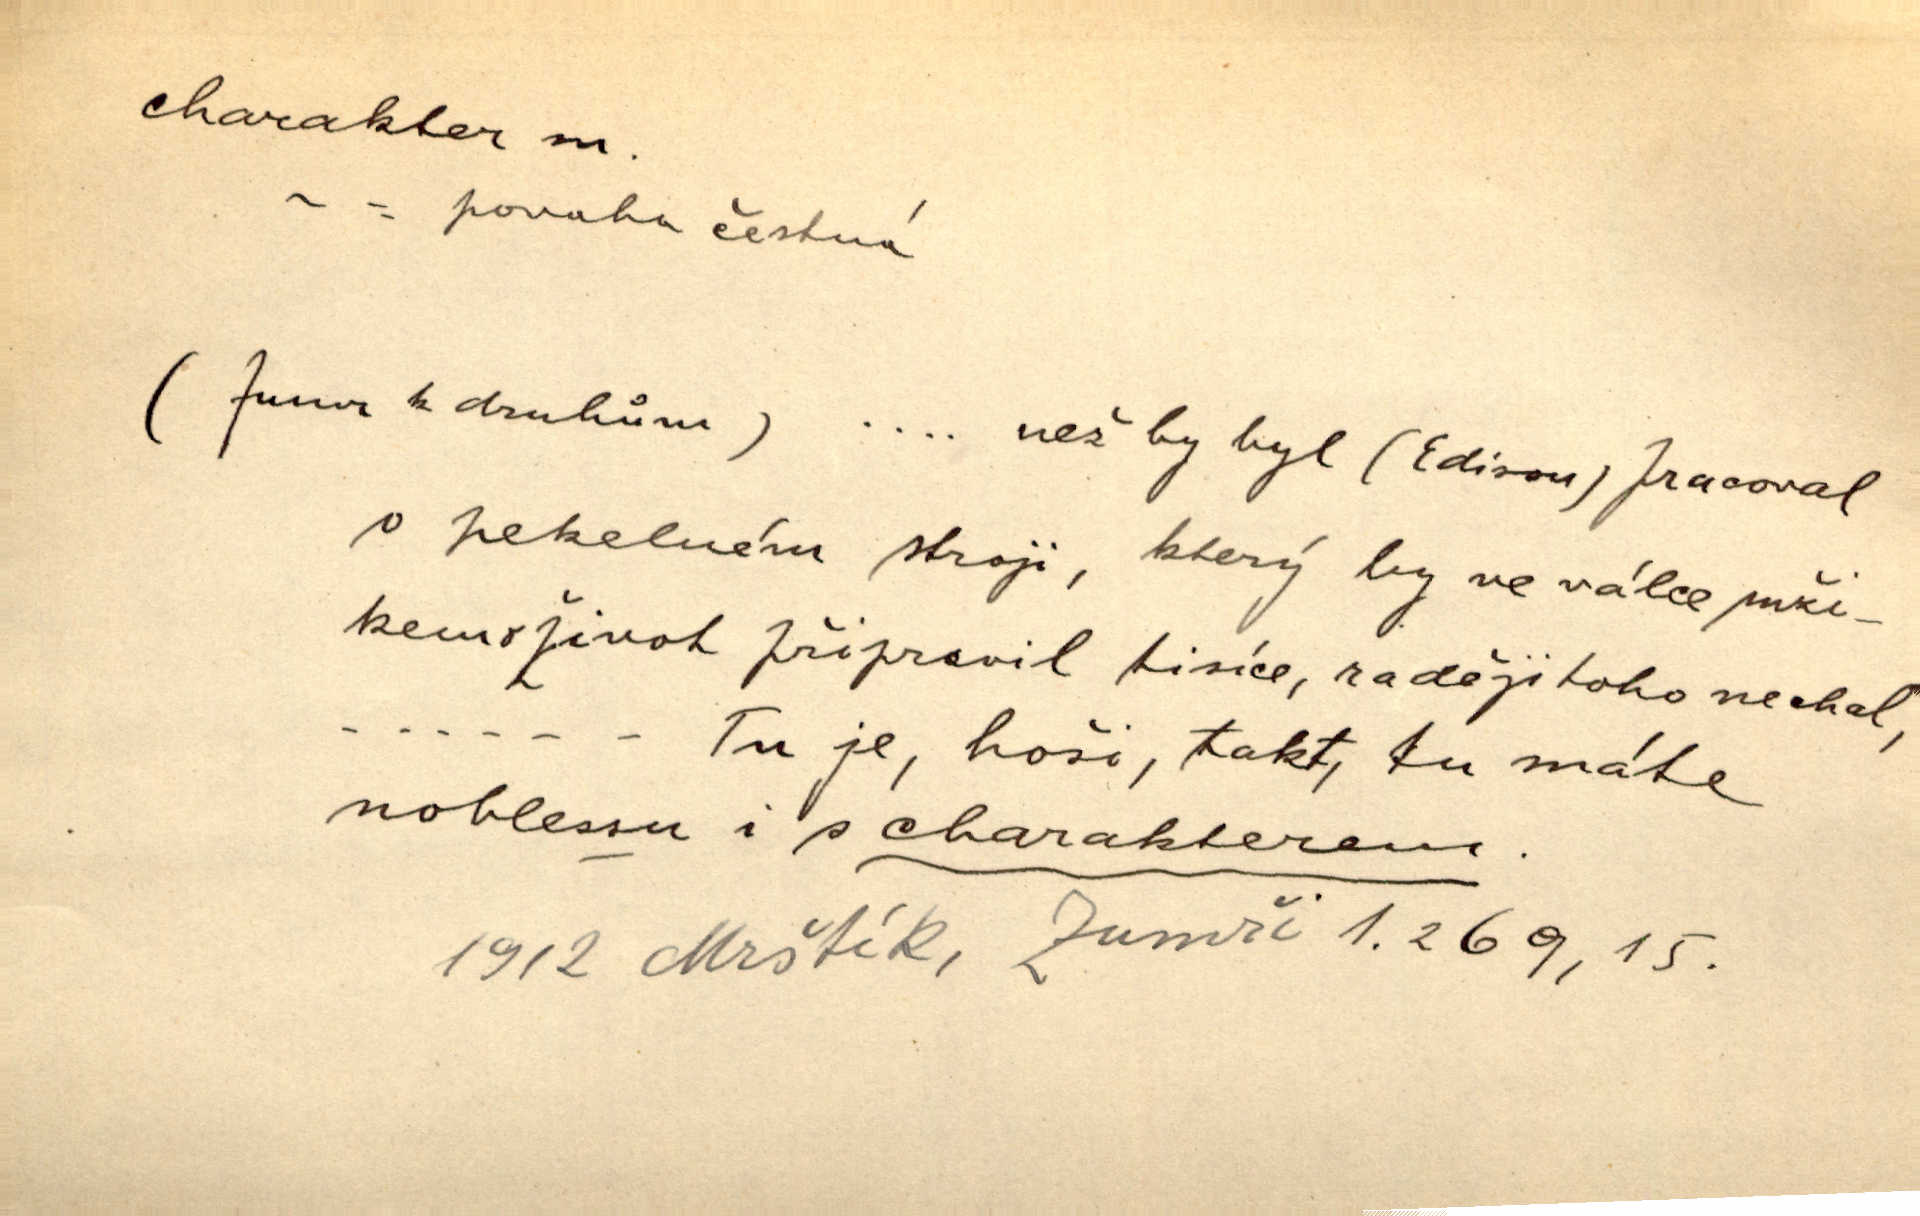 charakter m.
~ = povaha čestná
( Zumr k druhům ) .... než by byl (Edison) pracoval
o pekelném stroji, který by ve válce mži-
kem o život připravil tisíce, raději toho nechal,
- - - - - - Tu je, hoši, takt, tu máte
noblessu i s charakterem.
1912 Mrštík, Zumři 1.269, 15.